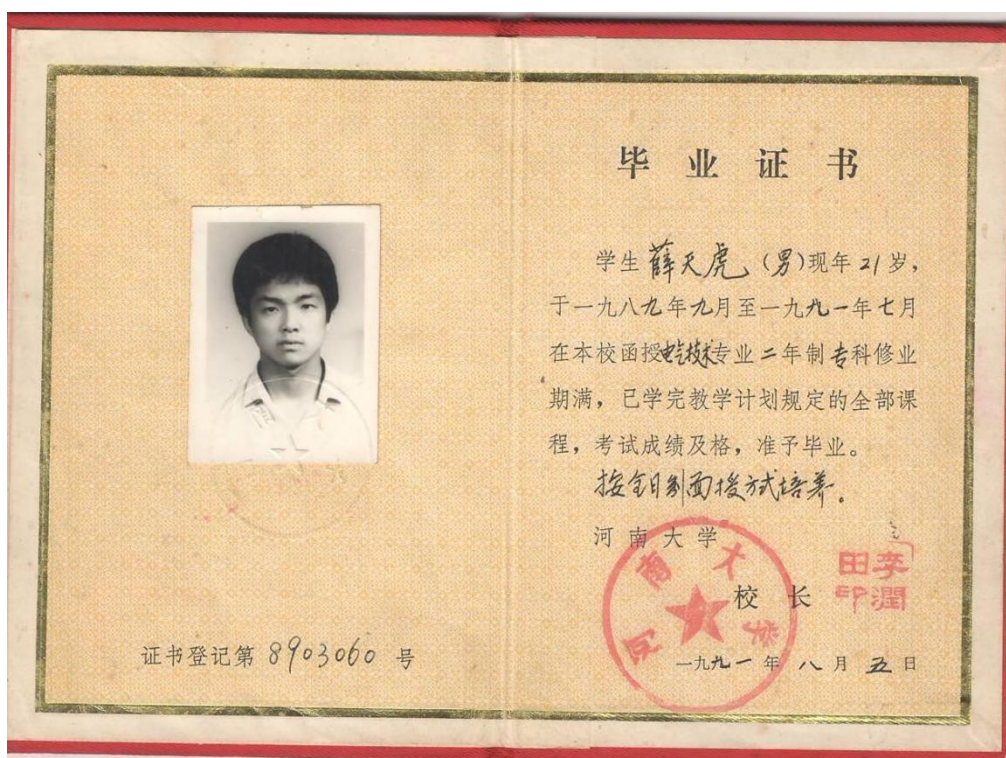 毕业证书
学生薛天虎（男）现年21岁，
于一九八九年九月至一九九一年七月
在本校函授电气技术专业二年制专科修业
期满，已学完教学计划规定的全部课
程，考试成绩及格，准予毕业。
按全日制面授方式培养。
河南大学
河南大学
校长
李润
田印
一九九一年八月五日
证书登记第8903060号